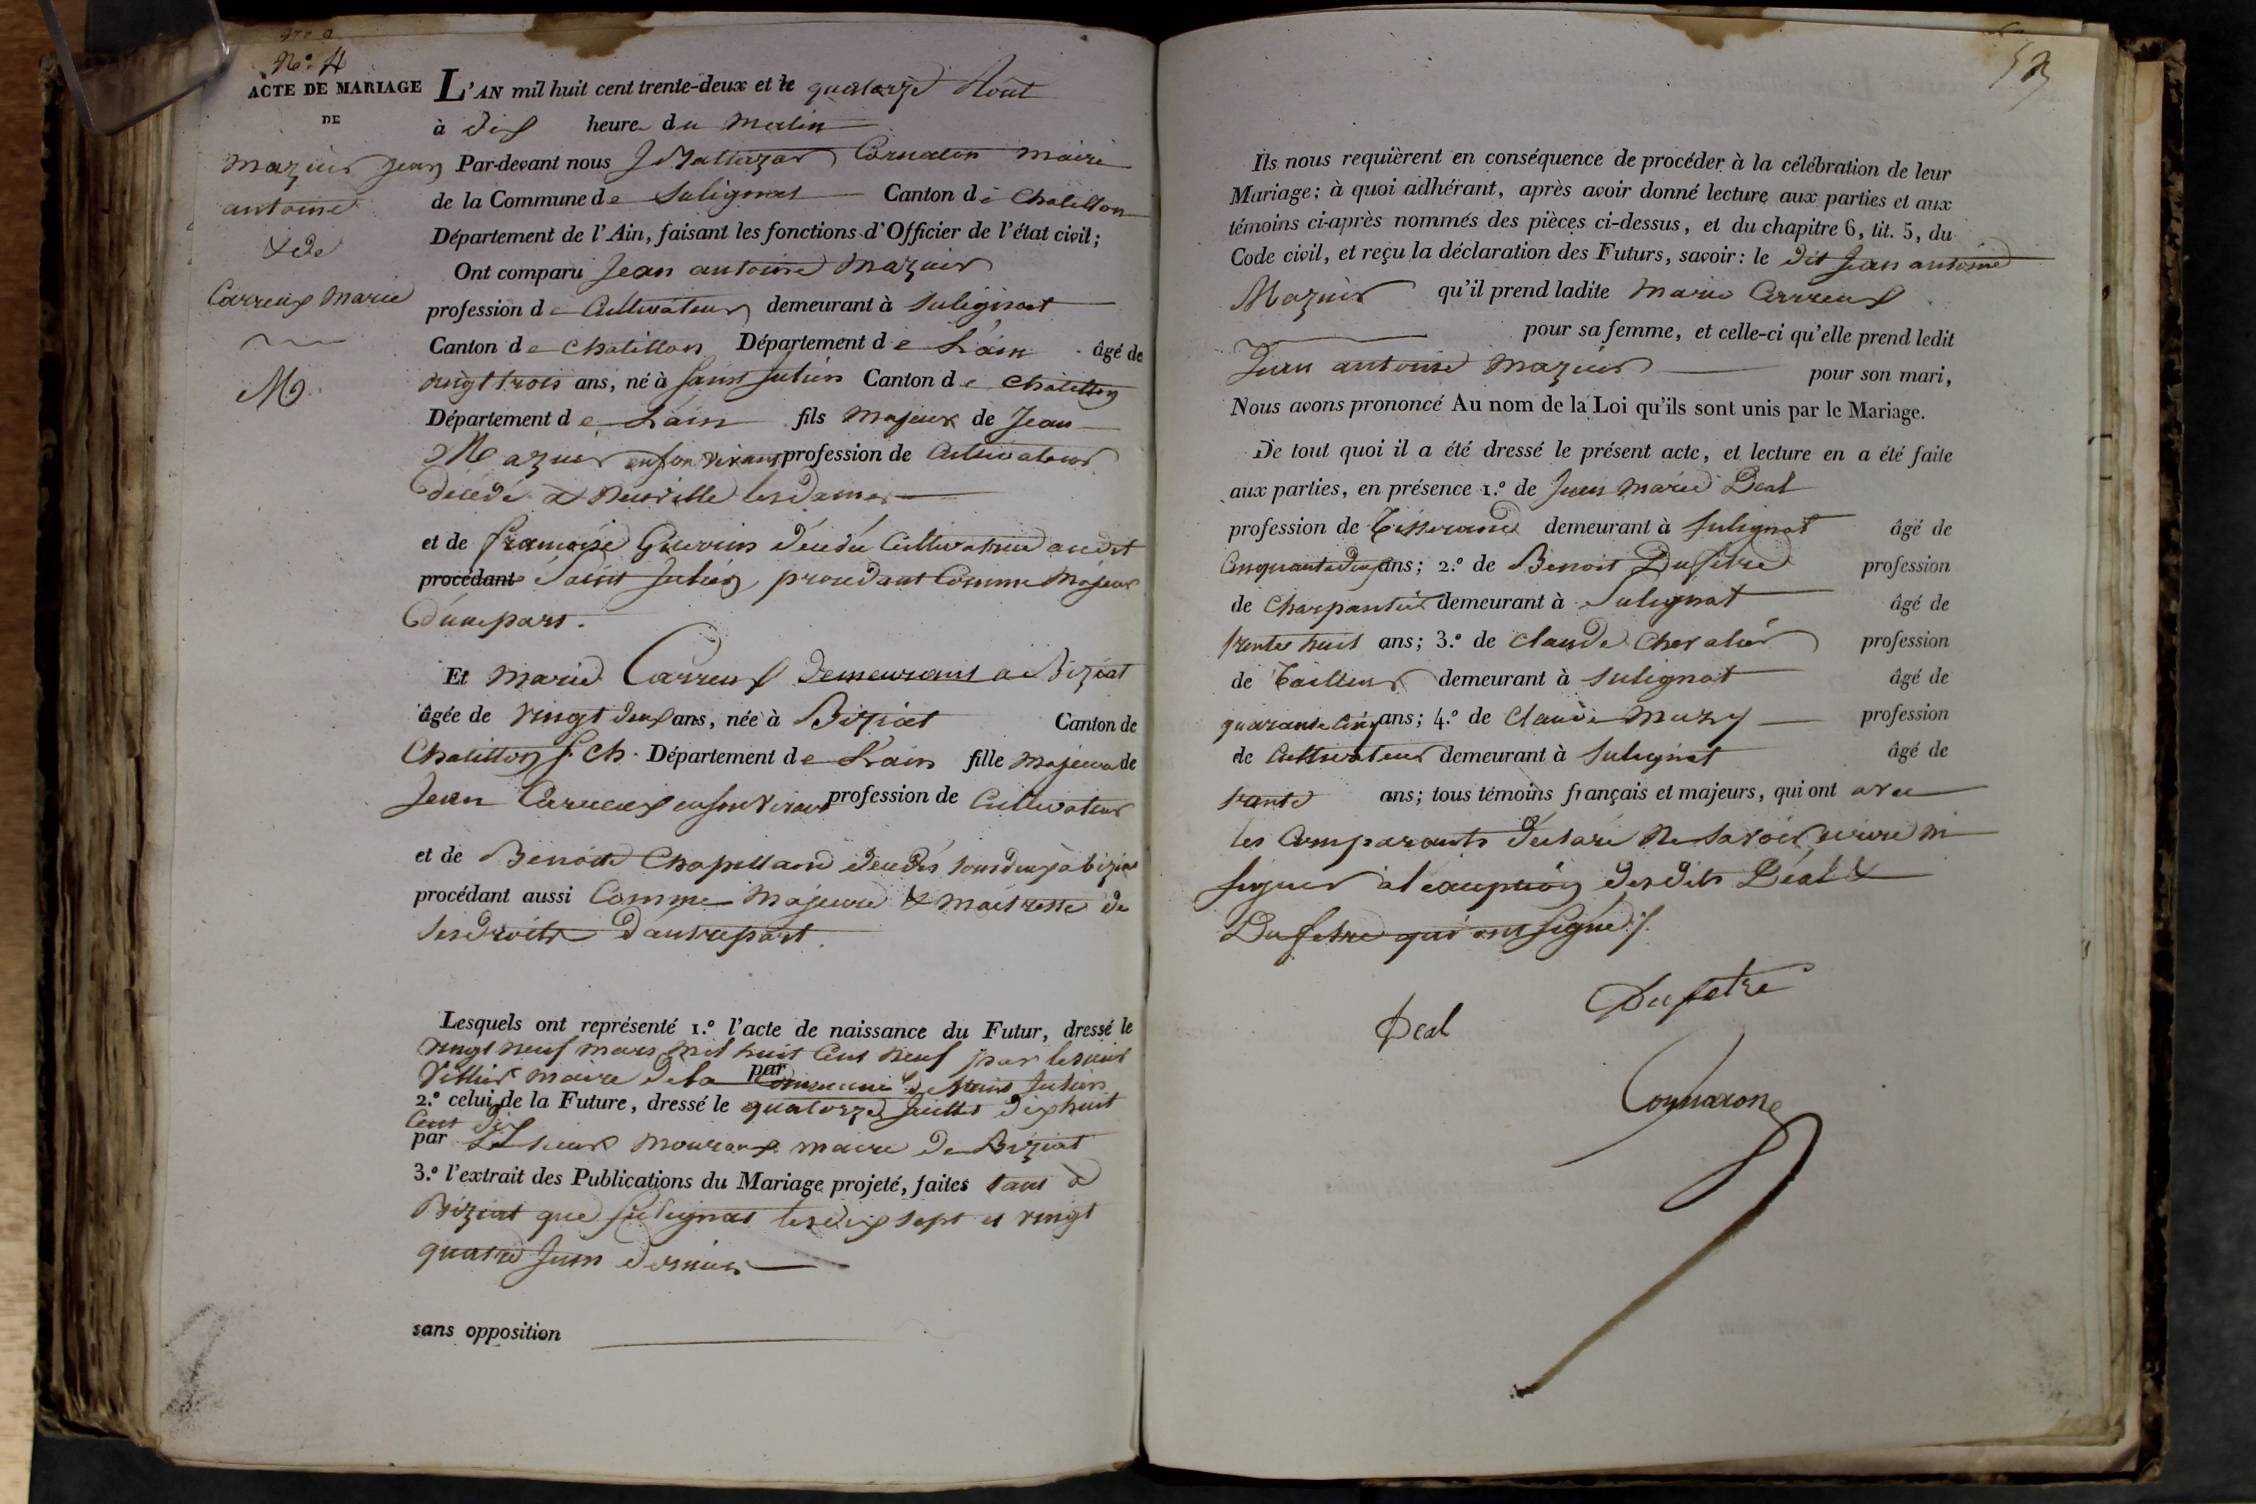 N.o 4
ACTE DE MARIAGE
DE
Mazuir Jean
antoine
& de
Carreux Marie
M.
L'AN mil huit cent trente-deux et le quatorze Aout
à dix heure du Matin
Par-devant nous Maire
de la Commune de Sulignat Canton de Chatillon
Département de l'Ain, faisant les fonctions d'Officier de l'état civil;
Ont comparu Jean antoine Mazuir
profession de Cultivateur demeurant à Sulignat
Canton de Chatillon Département de L'ain âgé de
vingt trois ans, né à Saint Julien Canton de Chatillon
Département de L'ain fils Majeur de Jean
Mazuir en son vivant profession de Cultivateur
décédé à Neuville les Dames
et de françoise Guerin décédée Cultivatrice audit
procédant Saint Julien, procédant Comme Majeur
d'une part.
Et Marie Carreux demeurant a Biziat
âgée de vingt deux ans, née à Biziat Canton de
Chatillon s. Ch. Département de L'ain fille Majeure de
Jean Carreux en son vivant profession de Cultivateur
et de Benoite Chapelland décédés tous deux à biziat
procédant aussi Comme Majeure & Maitresse de
ses droits d'autre part.
Lesquels ont représenté 1.o l'acte de naissance du Futur, dressé le
vingt neuf mars mil huit Cent neuf par le sieur
maire de la par Commune de Saint Julien
2.o celui de la Future, dressé le quatorze Juillet dix huit
Cent dix
par Le Sieur maire de Biziat
3.o l'extrait des Publications du Mariage projeté, faites tant à
Biziat que Sulignat les dix sept et vingt
quatre Juin dernier
sans opposition
53
Ils nous requièrent en conséquence de procéder à la célébration de leur
Mariage; à quoi adhérant, après avoir donné lecture aux parties et aux
témoins ci-après nommés des pièces ci-dessus, et du chapitre 6, tit. 5, du
Code civil, et reçu la déclaration des Futurs, savoir: le dit Jean antoine
Mazuir qu'il prend ladite Marie Carreux
pour sa femme, et celle-ci qu'elle prend ledit
Jean antoine Mazuir pour son mari,
Nous avons prononcé Au nom de la Loi qu'ils sont unis par le Mariage.
De tout quoi il a été dressé le présent acte, et lecture en a été faite
aux parties, en présence 1.o de Jean Marie Déal
profession de Tisserand demeurant à Sulignat âgé de
Cinquante deux ans; 2.o de Benoit Dufetre profession
de Charpantier demeurant à Sulignat âgé de
trente huit ans; 3.o de Claude Chevalier profession
de Tailleur demeurant à Sulignat âgé de
quarante Cinq ans; 4.o de Claude Muzy profession
de Cultivateur demeurant à Sulignat âgé de
trante ans; tous témoins français et majeurs, qui ont avec
les Comparants déclaré ne Savoir écrire ni
signer à l'exception desdits Déal &
Dufetre qui ont signé ./.
Deal
Dufetre